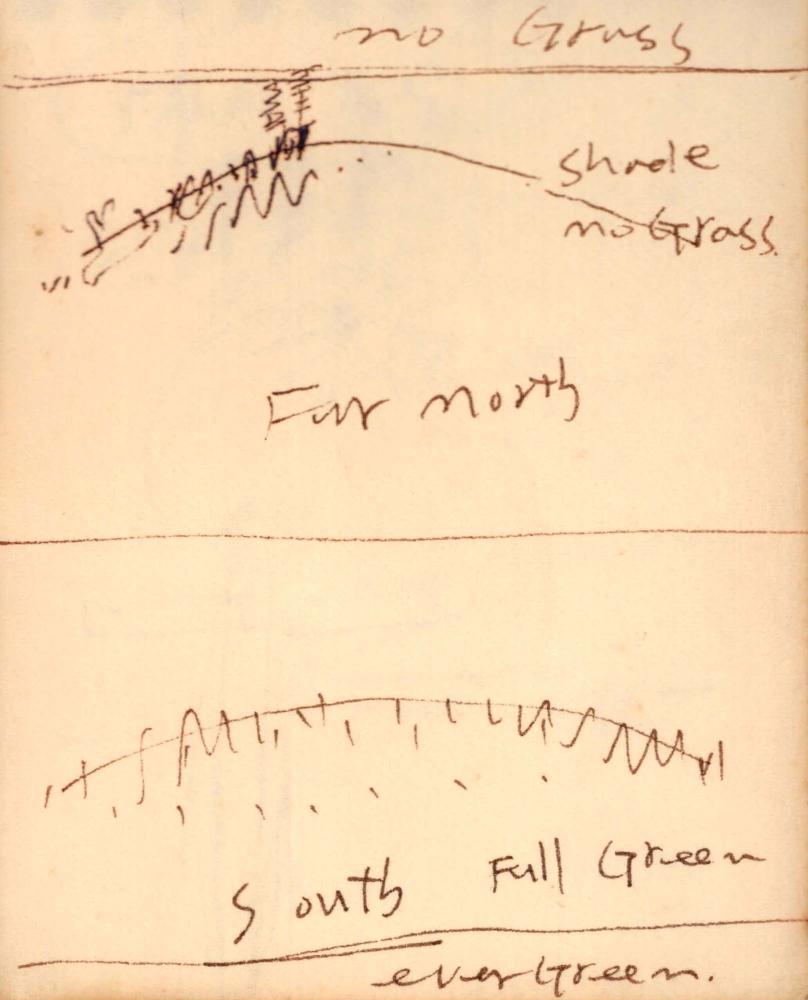 no Grass
shade
no Grass
Far north
Full Green
South
ever Green.